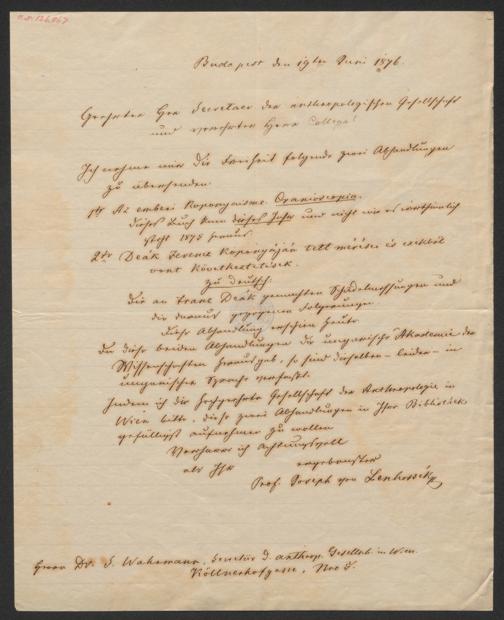 Budapest den 19ten Juni 1876.
Geehrter Herr Secretaer der anthropologischen Gesellschaft
und verehrter Herr Collega!
Ich nehme mir die Freiheit folgende zwei Abhandlungen
zu übersenden
1tr Az emberi koponyaisme. Cranioscopia.
dieses Buch kam dieses Jahr und nicht wie es irrthümlich
steht 1875 heraus.
2tr Deák Ferencz koponyáján tett mérései és ezekből
vont következtetések.
zu deutsch:
die an Franz Deák gemachten Schädelmessungen und
die daraus gezogenen Folgerungen.
Diese Abhandlung erschien heute.
Da diese beiden Abhandlungen die ungarische Akademie der
Wissenschaften herausgab, so sind dieselben – leider – in
ungarischer Sprache verfasst.
Indem ich die hochgeehrte Gesellschaft der Anthropologie in
Wien bitte, diese zwei Abhandlungen in ihrer Bibliothek
gefälligst aufnehmen zu wollen
Verharre ich achtungsvoll
als Ihr ergebenster
Prof. Joseph von Lenhossék
Herrn Dr. Wahrmann, Secretär d. anthrop. Gesellsch. in Wien.
Köllnerhofgasse, Nro